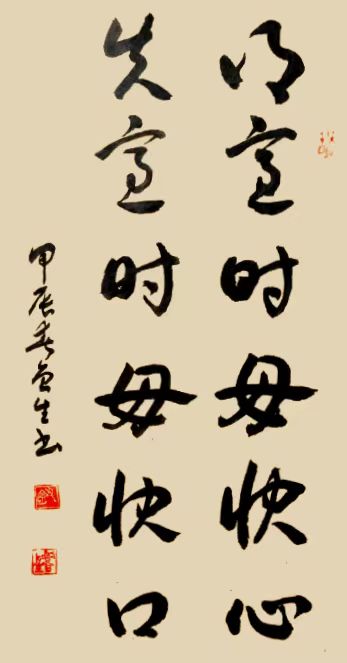 得意时毋快心
失意时毋快口
甲辰春生书